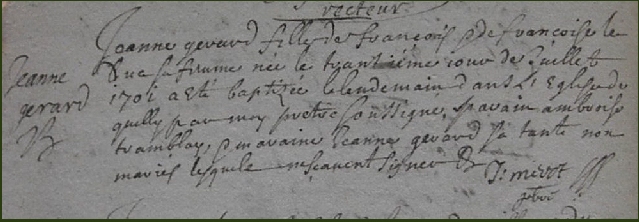 recteur
Jeanne gerard fille de francois & de francoise le
Duc sa femme née le trantiême jour de Juillet
1701 a eté baptisée le lendemain dans l'Eglise de
quilly par moy prêtre soussigné, parain ambrois
tramblay, & maraine Jeanne gerard sa tante non
mariés lesquels ne scavent signer &
Jeanne
gerard
B
J: mivot